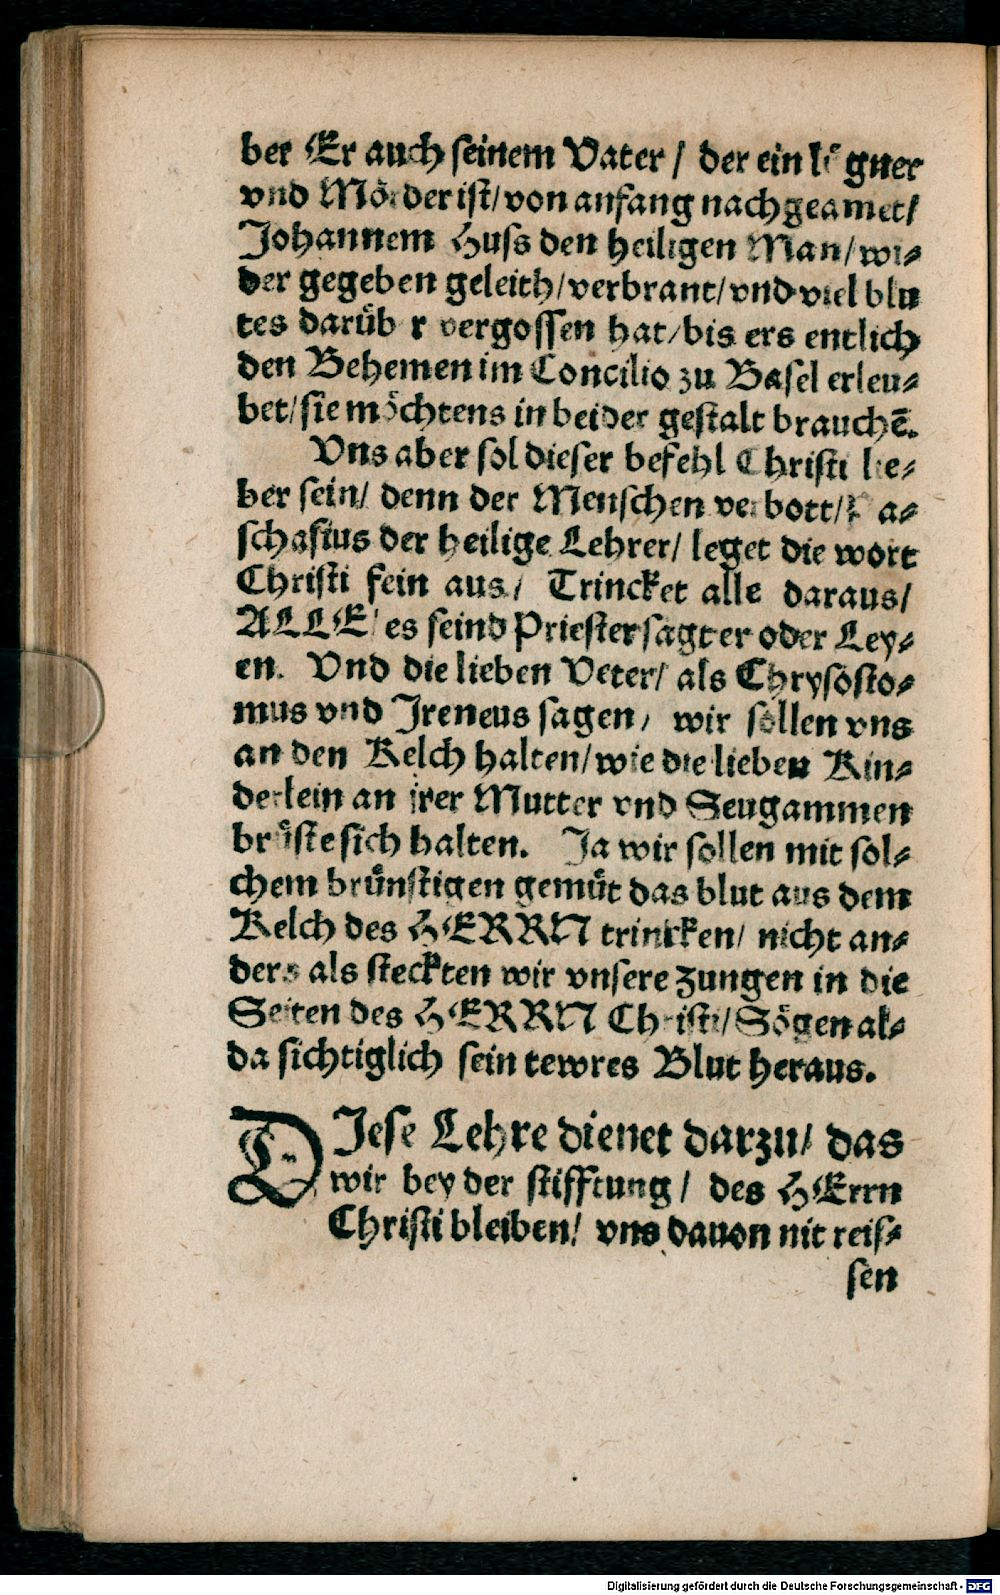 ber Er auch seinem Vater / der ein lügner
vnd Mörder ist/ von anfang nachgeamet/
Johannem Huss den heiligen Man/ wi-
der gegeben geleith/ verbrant/ vnd viel blu
tes darüber vergossen hat/ bis ers entlich
den Behemen im Concilio zu Basel erleu-
bet/ sie möchtens in beider gestalt brauchē.
Vns aber sol dieser befehl Christi lie-
ber sein/ denn der Menschen verbott/ Pa-
schasius der heilige Lehrer/ leget die wort
Christi fein aus/ Trincket alle daraus/
ALLE/ es seind Priester sagt er oder Ley-
en. Vnd die lieben Veter/ als Chrysosto-
mus vnd Jreneus sagen/ wir sollen vns
an den Kelch halten/ wie die lieben Kin-
derlein an irer Mutter vnd Seugammen
brüste sich halten. Ja wir sollen mit sol-
chem brünstigen gemüt das blut aus dem
Kelch des HERRN trincken/ nicht an-
ders als steckten wir vnsere zungen in die
Seiten des HERRN Christi/ Sögen al-
da sichtiglich sein tewres Blut heraus.
DJese Lehre dienet darzu/ das
wir bey der stifftung/ des HErrn
Christi bleiben/ vns dauon nit reis-
sen
Digitalisierung gefördert durch die Deutsche Forschungsgemeinschaft - DFG